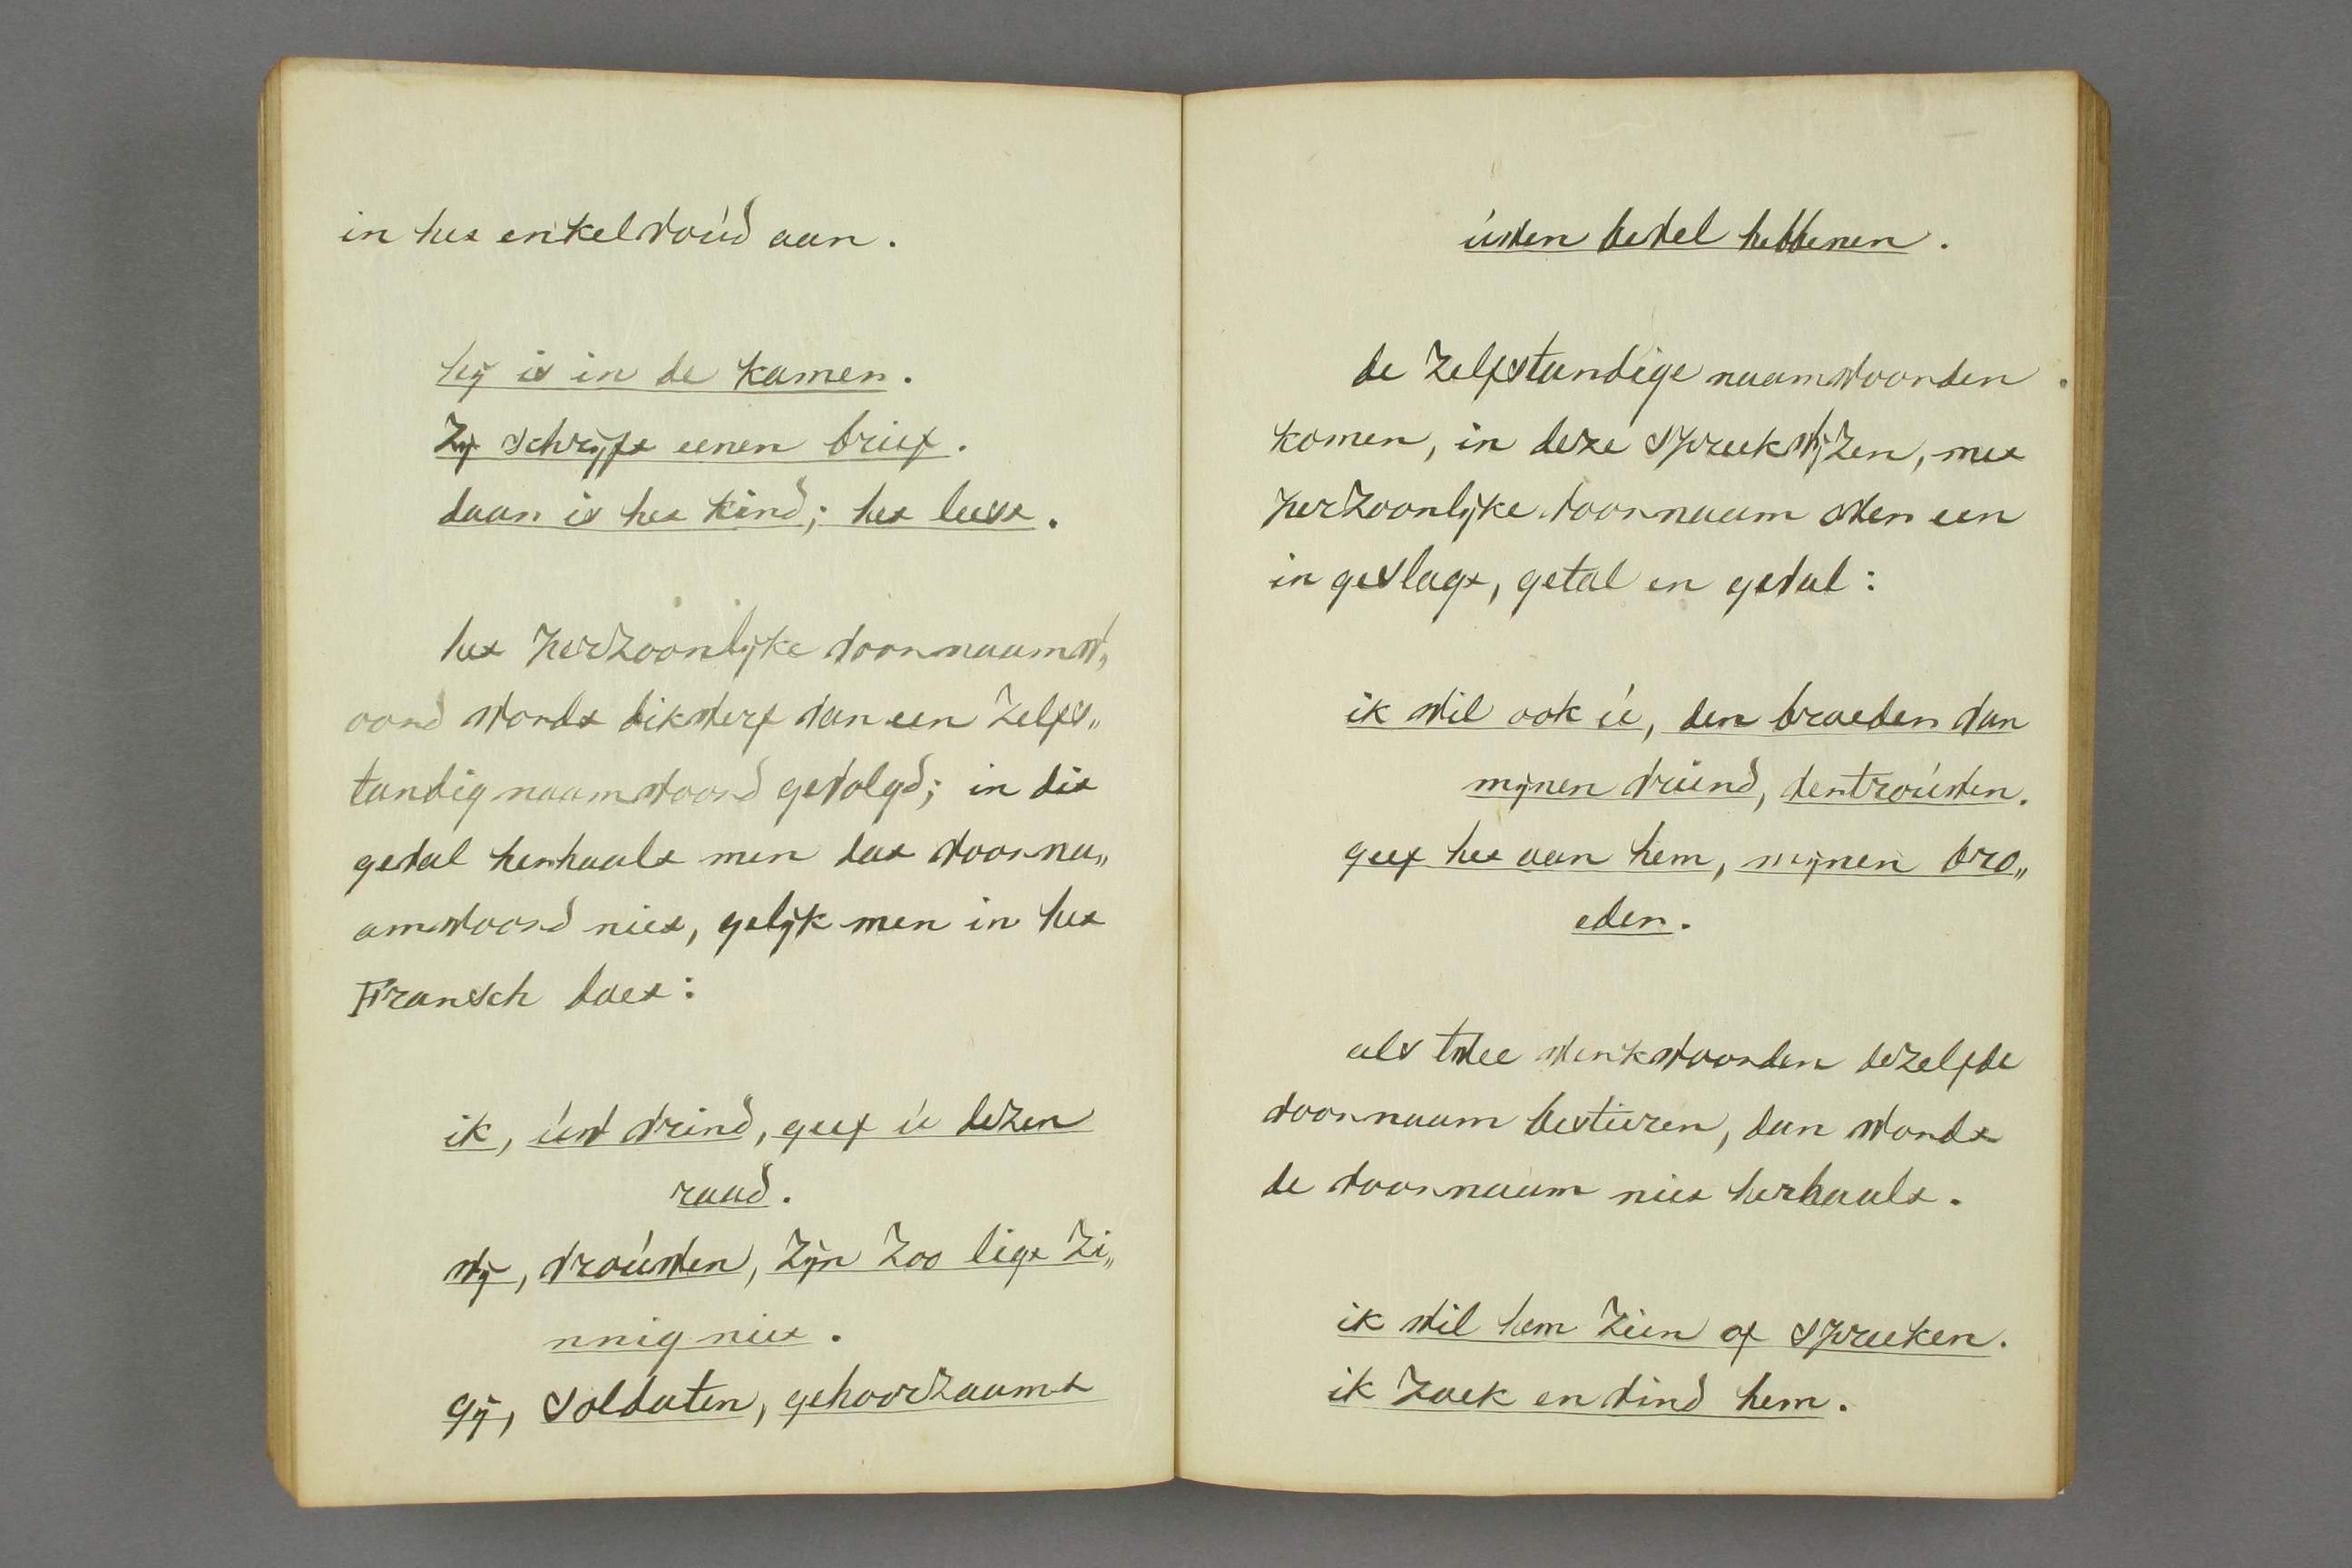 in het enkelvoúd aan.
hij is in de kamer.
Zij schrijft eenen brief.
daar is het kind; het leest.
het perzoonlijke voornaamw„
oord wordt dikwerf van een zelfs„
tandig naamwoord gevolgd; in dit
geval herhaalt men dat voorna„
amwoord niet, gelijk men in het
Fransch doet:
ik, úw vrind, geef ú dezen
raad.
wij, vroúwen, zijn zoo ligt zi„
nnig niet.
gij, soldaten, gehoorzaamt
úwen bevel hebberen.
de zelfstandige naamwoorden
komen, in deze spreekwijzen, met
perzoonlijke voornaam over een
in geslagt, getal en geval:
ik wil ook ú, den broeder van
mijnen vriend, vertroúwen.
geef het aan hem, mijnen bro„
eder.
als twee werkwoorden dezelfde
voornaam bestieren, dan wordt
de voornaam niet herhaalt.
ik wil hem zien of spreeken.
ik zoek en vind hem.